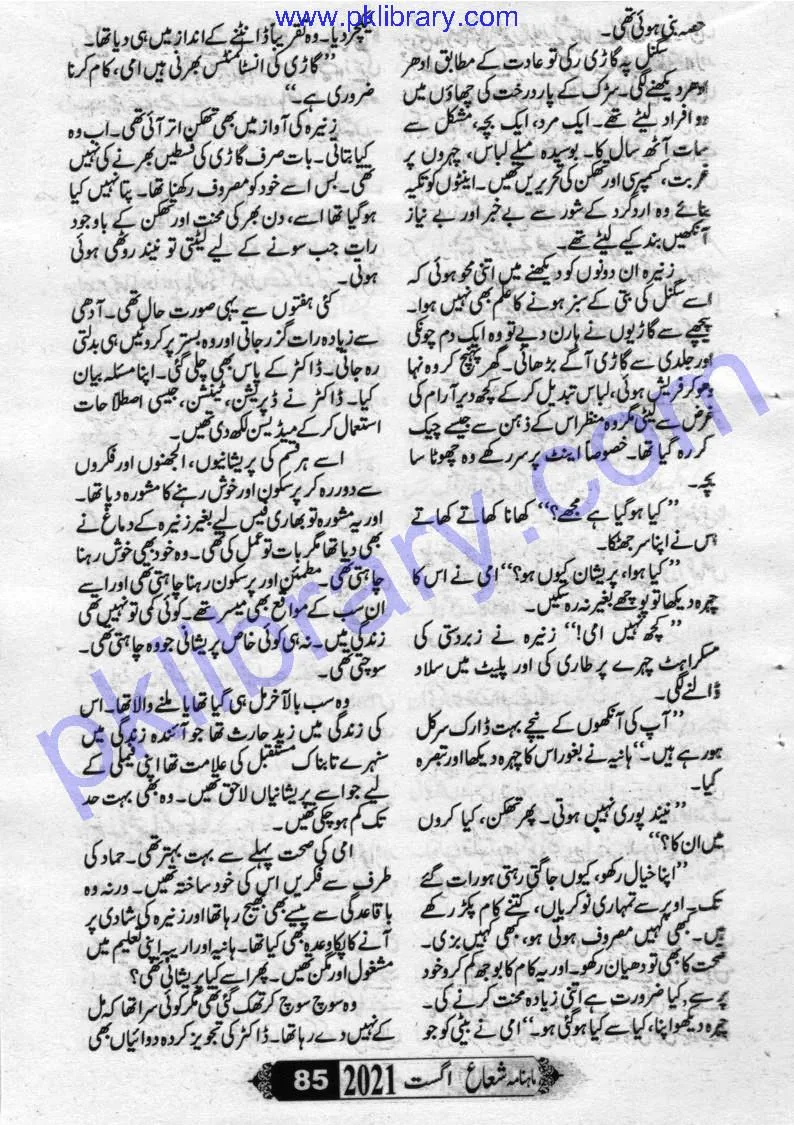 www.pklibrary.com
حصہ بنی ہوئی تھی۔
سگنل پہ گاڑی رکی تو عادت کے مطابق ادھر
ادھر دیکھنے لگی۔ سڑک کے پار درخت کی چھاؤں میں
دو افراد لیٹے تھے۔ ایک مرد، ایک بچہ، مشکل سے
سات آٹھ سال کا۔ بوسیدہ میلے لباس، چہروں پر
غربت، کسمپرسی اور تھکن کی تحریریں تھیں۔ اینٹوں کو تکیہ
بنائے وہ اردگرد کے شور سے بے خبر اور بے نیاز
آنکھیں بند کیے لیٹے تھے۔
زنیرہ ان دونوں کو دیکھنے میں اتنی محو ہوئی کہ
اسے سگنل کی بتی کے سبز ہونے کا علم بھی نہیں ہوا۔
پیچھے سے گاڑیوں نے ہارن دیے تو وہ ایک دم چونکی
اور جلدی سے گاڑی آگے بڑھائی۔ گھر پہنچ کر وہ نہا
دھو کر فریش ہوئی، لباس تبدیل کر کے کچھ دیر آرام کی
غرض سے لیٹی مگر وہ منظر اس کے ذہن سے جیسے چپک
کر رہ گیا تھا۔ خصوصاً اینٹ پر سر رکھے وہ چھوٹا سا
بچہ۔
”کیا ہو گیا ہے مجھے؟“ کھانا کھاتے کھاتے
اس نے اپنا سر جھٹکا۔
”کیا ہوا، پریشان کیوں ہو؟“ امی نے اس کا
چہرہ دیکھا تو پوچھے بغیر نہ رہ سکیں۔
”کچھ نہیں امی!“ زنیرہ نے زبردستی کی
مسکراہٹ چہرے پر طاری کی اور پلیٹ میں سلاد
ڈالنے لگی۔
”آپ کی آنکھوں کے نیچے بہت ڈارک سرکل
ہو رہے ہیں۔“ ہانیہ نے بغور اس کا چہرہ دیکھا اور تبصرہ
کیا۔
”نیند پوری نہیں ہوتی۔ پھر تھکن، کیا کروں
میں ان کا؟“
”اپنا خیال رکھو، کیوں جاگتی رہتی ہو رات گئے
تک۔ اوپر سے تمہاری نوکریاں، کتنے کام پکڑ رکھے
ہیں۔ کبھی کہیں مصروف ہوتی ہو، کبھی کہیں بزی۔
صحت کا بھی تو دھیان رکھو۔ اور یہ کام کا بوجھ کم کرو خود
پر سے، کیا ضرورت ہے اتنی زیادہ محنت کرنے کی۔
چہرہ دیکھو اپنا، کیا سے کیا ہو گئی ہو۔“ امی نے بیٹی کو جو
لیکچر دیا۔ وہ تقریباً ڈانٹنے کے انداز میں ہی دیا تھا۔
”گاڑی کی انسٹالمنٹس بھرنی ہیں امی، کام کرنا
ضروری ہے۔“
زنیرہ کی آواز میں بھی تھکن اتر آئی تھی۔ اب وہ
کیا بتاتی۔ بات صرف گاڑی کی قسطیں بھرنے کی نہیں
تھی۔ بس اسے خود کو مصروف رکھنا تھا۔ پتا نہیں کیا
ہو گیا تھا اسے، دن بھر کی محنت اور تھکن کے باوجود
رات جب سونے کے لیے لیٹتی تو نیند روٹھی ہوئی
ہوتی۔
کئی ہفتوں سے یہی صورت حال تھی۔ آدھی
سے زیادہ رات گزر جاتی اور وہ بستر پر کروٹیں ہی بدلتی
رہ جاتی۔ ڈاکٹر کے پاس بھی چلی گئی۔ اپنا مسئلہ بیان
کیا۔ ڈاکٹر نے ڈپریشن، ٹینشن، جیسی اصطلاحات
استعمال کر کے میڈیسن لکھ دی تھیں۔
اسے ہر قسم کی پریشانیوں، الجھنوں اور فکروں
سے دور رہ کر پرسکون اور خوش رہنے کا مشورہ دیا تھا۔
اور یہ مشورہ تو بھاری فیس لیے بغیر زنیرہ کے دماغ نے
بھی دیا تھا مگر بات تو عمل کی تھی۔ وہ خود بھی خوش رہنا
چاہتی تھی۔ مطمئن اور پرسکون رہنا چاہتی تھی اور اسے
ان سب کے مواقع بھی میسر تھے۔ کوئی کمی تو نہیں تھی
زندگی میں۔ نہ ہی کوئی خاص پریشانی جو وہ چاہتی تھی۔
سوچتی تھی۔
وہ سب بالآخر مل ہی گیا تھا یا ملنے والا تھا۔ اس
کی زندگی میں زید حارث تھا جو آئندہ زندگی میں
سنہرے تابناک مستقبل کی علامت تھا اپنی فیملی کے
لیے جو اسے پریشانیاں لاحق تھیں۔ وہ بھی بہت حد
تک کم ہو چکی تھیں۔
امی کی صحت پہلے سے بہت بہتر تھی۔ حماد کی
طرف سے فکریں اس کی خود ساختہ تھیں۔ ورنہ وہ
باقاعدگی سے پیسے بھی بھیج رہا تھا اور زنیرہ کی شادی پر
آنے کا پکا وعدہ بھی کیا تھا۔ ہانیہ اور اریبہ اپنی تعلیم میں
مشغول اور مگن تھیں۔ پھر اسے کیا پریشانی تھی؟
وہ سوچ سوچ کر تھک گئی تھی مگر کوئی سرا تھا کہ مل
کے نہیں دے رہا تھا۔ ڈاکٹر کی تجویز کردہ دوائیاں بھی
ماہنامہ شعاع اگست 2021 85
pklibrary.com